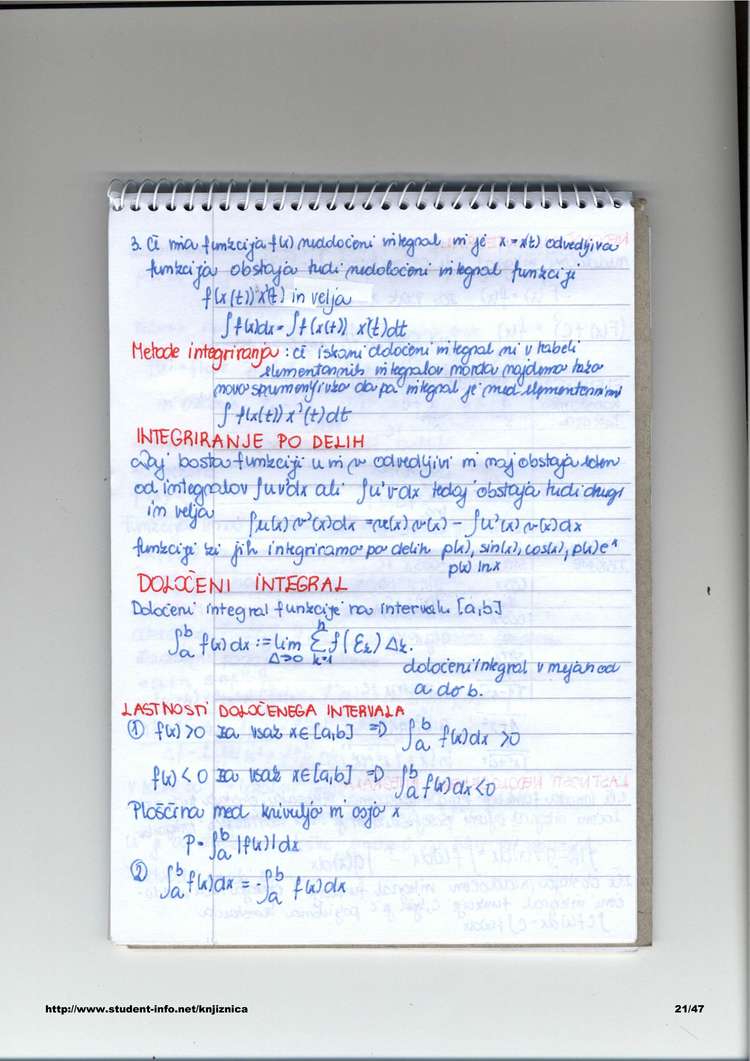 3. Če ima funkcija f(x) nedoločeni integral in je x = x(t) odvedljiva
funkcija obstaja tudi nedoločeni integral funkcije
f(x(t)) x'(t) in velja
∫ f(x)dx = ∫ f(x(t)) x'(t)dt
Metode integriranja: če iskani določeni integral ni v tabeli
elementarnih integralov morda najdemo tako
novo spremenljivko da pa integral je med elementarnimi
∫ f(x(t)) x'(t)dt
INTEGRIRANJE PO DELIH
Naj bosta funkciji u in v odvedljivi in naj obstaja eden
od integralov ∫uv'dx ali ∫u'vdx tedaj obstaja tudi drugi
in velja
∫u(x) v'(x)dx = u(x) v(x) - ∫u'(x) v(x)dx
funkcije ki jih integriramo po delih p(x), sin(x), cos(x), p(x)eˣ
p(x) lnx
DOLOČENI INTEGRAL
Določeni integral funkcije na intervalu [a,b]
∫ₐᵇ f(x)dx := lim Σ f(ξₖ) Δₖ.
Δ→0 k=1 n
določeni integral v mejah od
a do b.
LASTNOSTI DOLOČENEGA INTERVALA
① f(x) > 0 za vsak x∈[a,b] => ∫ₐᵇ f(x)dx > 0
f(x) < 0 za vsak x∈[a,b] => ∫ₐᵇ f(x)dx < 0
Ploščina med krivuljo in osjo x
P = ∫ₐᵇ |f(x)|dx
② ∫ₐᵇ f(x)dx = -∫ₐᵇ f(x)dx
http://www.student-info.net/knjiznica 21/47